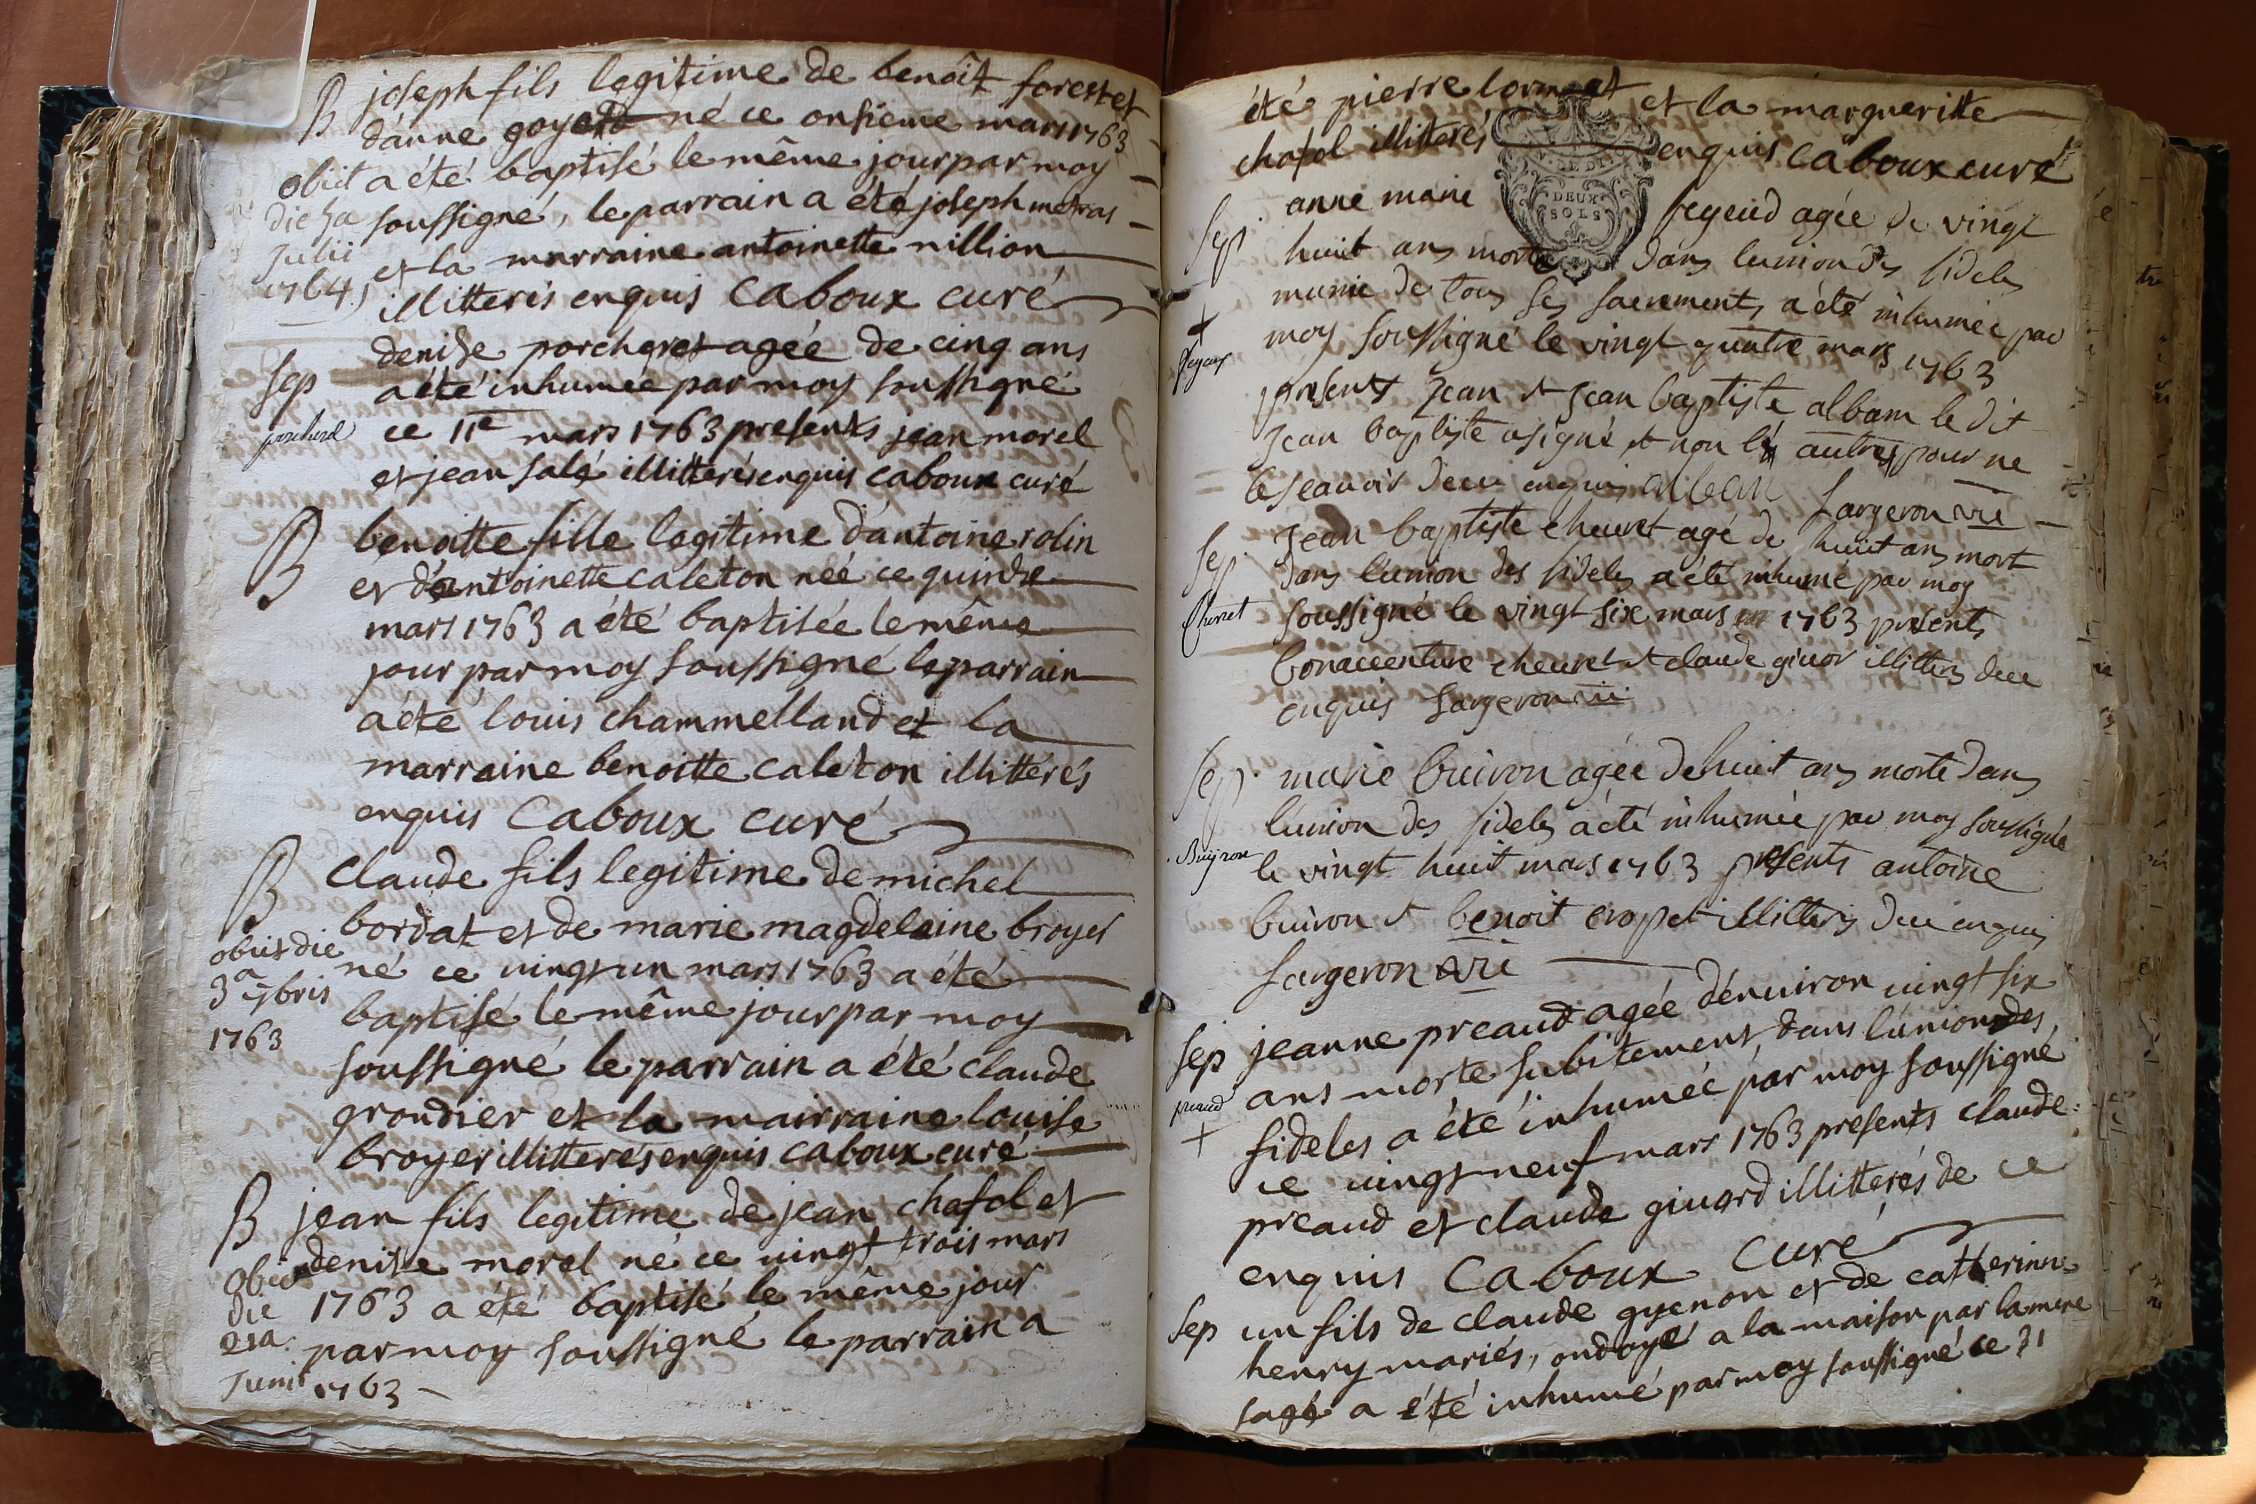 B joseph fils legitime de benoît forest et
d'anne goyard né ce onsieme mars 1763
obiit a été baptisé le même jour par moy
die 5a soussigné, le parrain a été joseph metras
Julii et la marraine antoinette nillion
1764 illitterés enquis Caboux curé
denise porcheret agée de cinq ans
Sep a été inhumée par moy soussigné
ce 11e mars 1763 presents jean morel
et jean salé illitterés enquis caboux curé
B benoitte fille legitime d'antoine rolin
et d'antoinette caleton née ce quinze
mars 1763 a été baptisée le même
jour par moy soussigné le parrain
a été louis chammelland et la
marraine benoitte caleton illitterés
enquis Caboux curé
B Claude fils legitime de michel
bordat et de marie magdeleine broyer
obiit die né ce vingt un mars 1763 a été
3a 7bris baptisé le même jour par moy
1763 soussigné le parrain a été claude
grondier et la mairraine louise
broyer illitterés enquis caboux curé
B jean fils legitime de jean chafol et
Obiit denise morel né ce vingt trois mars
die 1763 a été baptisé le même jour
21a par moy soussigné le parrain a
Junii 1763
été pierre lormet et la margueritte
chafol illitterés enquis Caboux curé
DEUX
SOLS
Sep. anne marie feyeud agée de vingt
huit ans morte dans lunion des fideles
munie de tous ses sacrements a été inhumée par
moy soussigné le vingt quatre mars 1763
presents Jean et Jean baptiste alban le dit
Jean baptiste a signé et non les autres pour ne
le scavoir dece enquis alban Sargeron vic
Sep. Jean baptiste cheuret agé de huit ans mort
dans lunion des fideles a été inhumé par moy
Cheuret soussigné le vingt six mars 1763 presents
bonaventure cheuret et claude givor illitters dece
enquis Sargeron vic
Sep. marie buiron agée de huit ans morte dans
lunion des fideles a été inhumée par moy soussigné
Buyron le vingt huit mars 1763 presents antoine
buiron et benoit cropet illitters dece enquis
Sargeron vic
Sep jeanne preaud agée d'environ vingt six
preaud ans morte subitement, dans l'union des
fideles a été inhumée par moy soussigné
ce vingt neuf mars 1763 presents claude
preaud et claude givord illitterés de ce
enquis Caboux curé
Sep un fils de claude guenon et de catterinne
henry mariés, ondoyé a la maison par la mere
sage a été inhumé par moy soussigné ce 31